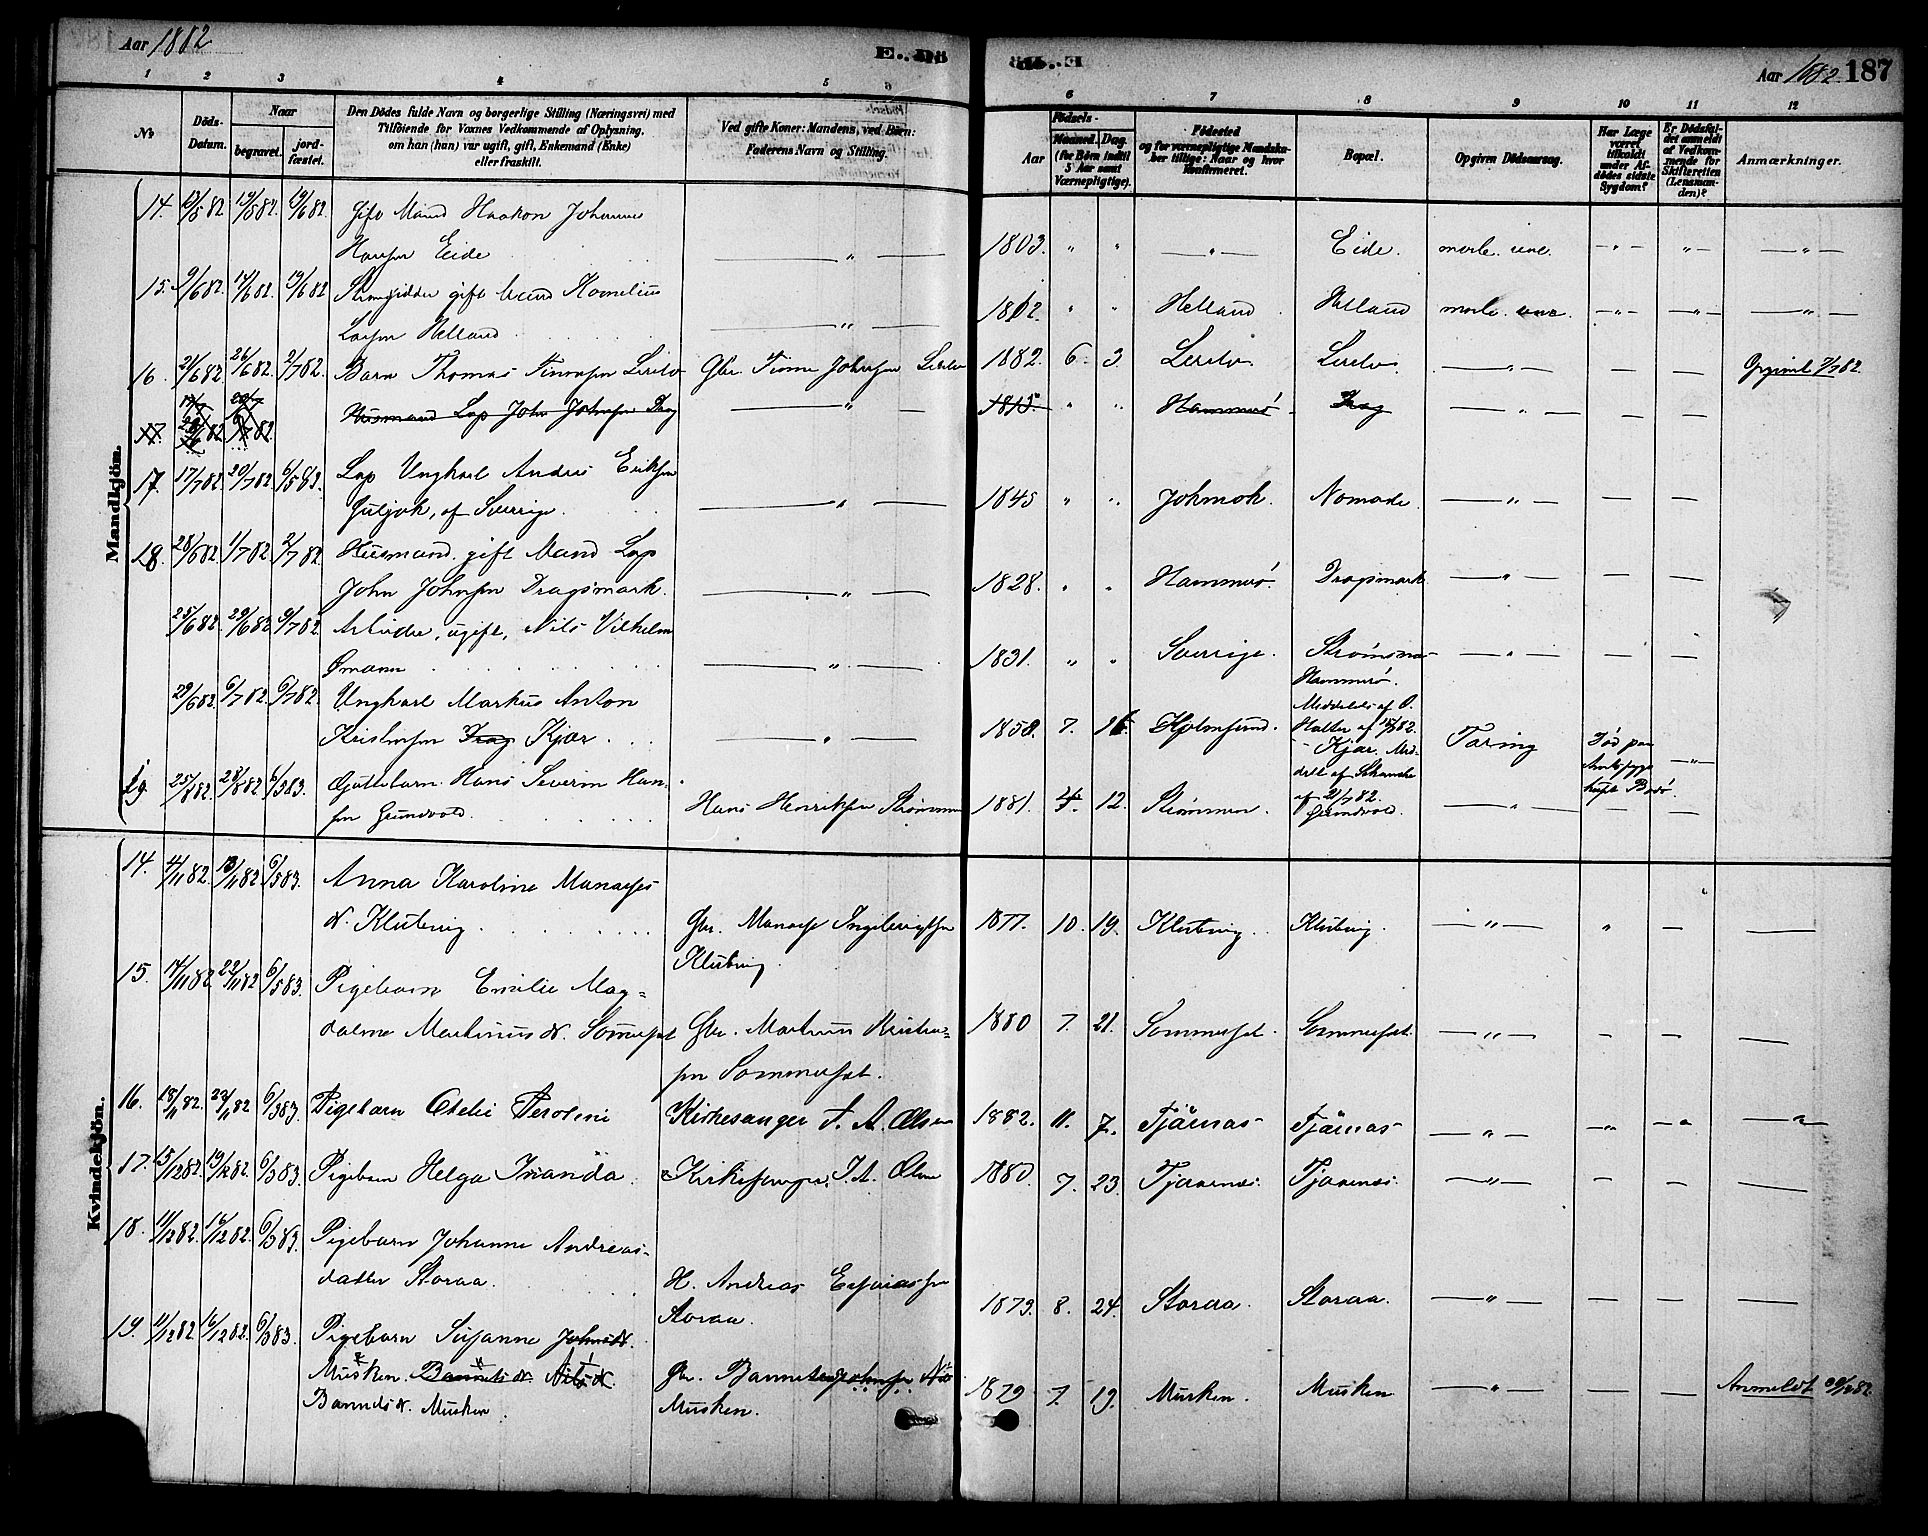 Aar 1882
E.. Dö
Aar 1882. 187
1 2 3 4 5 6
6 7 8 9 10 11 12
No
Döds-
Datum.
Naar
begravet.
jord-
fæstet.
Den Dödes fulde Navn og borgerlige Stilling (Næringsvei) med
Tilföiende for Voxnes Vedkommende af Oplysning,
om han (hun) var ugift, gift, Enkemand (Enke)
eller fraskilt.
Ved gifte Koner: Mandens, ved Börn:
Faderens Navn og Stilling.
Födsels-
Aar
Maaned. Dag.
(for Börn indtil
5 Aar samt
Værnepligtige).
Födested
og for værnepligtige Mandska-
ber tillige: Naar og hvor
konfirmeret.
Bopæl.
Opgiven Dödsaarsag.
Har Læge
været
tilkaldt
under Af-
dödes sidste
Sygdom?
Er Dödsfal-
det anmeldt
af Vedkom-
mende for
Skifteretten
(Lensman-
den)?
Anmærkninger.
Mandkjön.
14. 13/5 82 19/5 82. 9/6 82. Gift Mand Haakon Johannes
Hansen Eide — „ — 1803. „ „ — „ — Eide. — „ — „ — „ —
15. 9/6 82. 14/6 82. 19/6 82 gift Mand Kornelius
Larsen Helland — „ — 1812. „ „ Helland Helland — „ — — „ — — „ —
16. 21/6 82 26/6 82. 2/7 82. Barn Thomas Lerelv Gbr. Johnsen Lerelv 1882. 6. 3. Lerelv. Lerelv. — „ — — — 7/7 82.
17. 82 82. Husmand Lap John Johnsen Drag — „ — 1815. „ „ Hammerö. Drag — „ — — —
17. 17/7 82. 20/7 82. 6/5 83. Lap Ungkarl Anders Eriksen
af Sverrige. — „ — 1845 „ „ Jokmok. Nomade. — „ — — —
18. 28/6 82. 1/7 82. 2/7 82. Husmand, gift Mand Lap
John Johnsen Dragsmark. — „ — 1828. „ „ Hammerö. Dragsmark — „ — — —
25/6 82. 29/6 82. 9/7 82. Arbeider, ugift, Nils Vilhelm
Ömann — „ — 1831. „ „ Sverrige. Strömsnes
Hammerö. — „ — — —
29/6 82. 6/7 82. 6/7 82. Ungkarl Markus Anton
Kristensen Drag Kjær. — „ — 1858. 7. 26. Meddelels af O.
Holter af 82.
- Kjær. Med-
delt af
af 21/7 82. Tæring Död paa
Amtssyge
huset Bodö. — „ —
19. 25/8 82. 28/8 82 6/3 83. Guttebarn Hans Severin Han-
sen Grundvold. Hans Henriksen Strömmen 1881. 4. 12. Strömmen. Grundvold. — „ — —
Kvindekjön.
14. 4/11 82. 13/11 82 6/5 83. Anna Karoline Manasses
d. Klubvig. Gbr. Manasse Ingebrigtsen
Klubvig. 1877. 10. 19. Klubvig. Klubvig. — „ — „ — —
15. 14/11 82 22/11 82 6/5 83. Pigebarn Emilie Mag-
dalena Martinus d. Sommerset Gbr. Martinus Kristen-
sen Sommerset. 1880 7. 21. Sommerset. Sommerset. — „ — — — —
16. 18/11 82. 23/11 82 6/3 83. Pigebarn Otelie Peroline Kirkesanger J. A. Olsen 1882. 11. 7. Tjärnæs Tjärnæs — „ — — „ — „ — „ —
17. 15/12 82. 19/12 82. 6/3 83. Pigebarn Helga Iranda. Kirkesanger. J. A. Olsen 1880. 7. 23. Tjærnes. Tjærnes. — „ — — — —
18. 11/12 82. 16/12 82. 6/3 83. Pigebarn Johanne Andreas-
datter Storaa. H. Andreas Esaiassen
Storaa. 1879. 8. 24. Storaa. Storaa. — „ — — — —
19. 11/12 82 16/12 82. 6/3 83. Pigebarn Susanne Johnsd.
Musken. Nilsd.
Musken. Gbr. Johnsen Nils
Musken. 1879 7. 19. Musken. Musken — „ — — — Anmeldt 82.